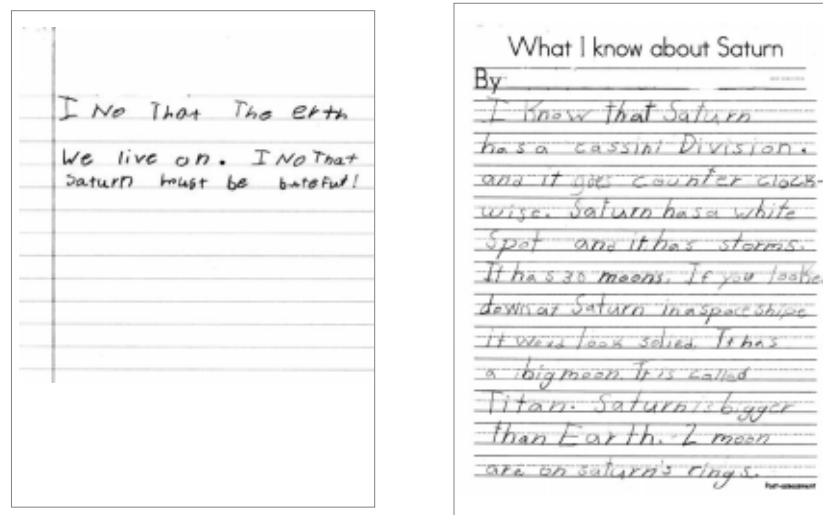 I No That The erth
We live on. I No That
Saturn must be buteful!
What I know about Saturn
By
I Know that Saturn
has a cassini Division.
and it goes counter clock-
wise. Saturn has a white
Spot and it has storms.
It has 30 moons. If you looke
down at Saturn in a spaceshipe
it woud look solied. It has
a big moon. It is called
Titan. Saturn is bigger
than Earth. 2 moon
are on saturn's rings.
Post-assessment